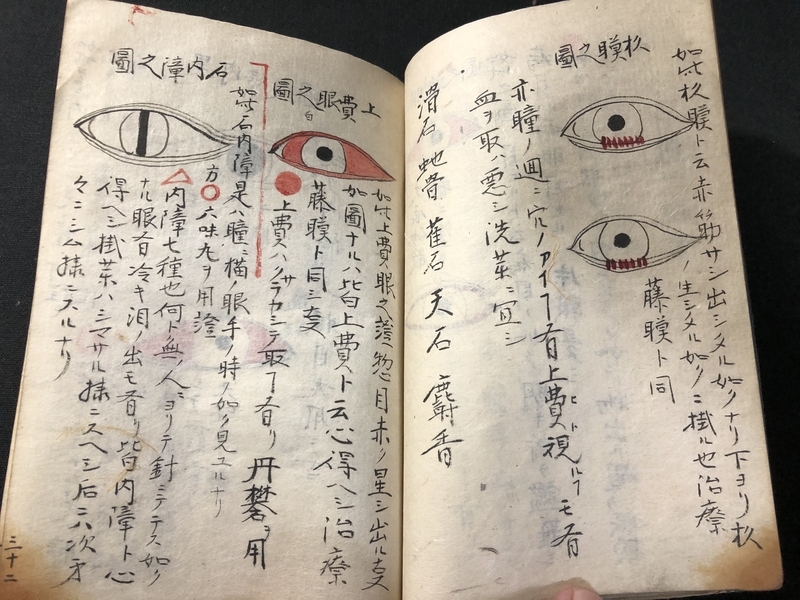 杉膜之圖
如此杉膜ト云赤筋サシ出シタル如クナリ下ヨリ杉
ノ生シタル如クニ掛ル也治療
藤膜ト同
亦瞳ノ週ニ穴ノアイ有上費視ルモ有
血ヲ取ハ悪シ洗薬ニ宜シ
滑石 蛇骨 石 天石 麝香
上費眼之圖
如此上費眼之證惣目赤ク星シ出ル
如圖ナルハ皆上費ト云心得ヘシ治療
藤膜ト同シ
上費ハ取有リ 丹礬ヲ用
石内障之圖
如此石内障是ハ瞳猫ノ眼ノ時ノ如ク見ユルナリ
方〇六味丸ヲ用
内障七種也何ト無ク人ニヨリテ針ニテ如ク
ナル眼有冷キ泪ノ出モ有リ皆内障ト心
得ヘシ掛薬ハシマサル様ニスヘシ后ニ次才
々ニシム様ニスルナリ
三十二